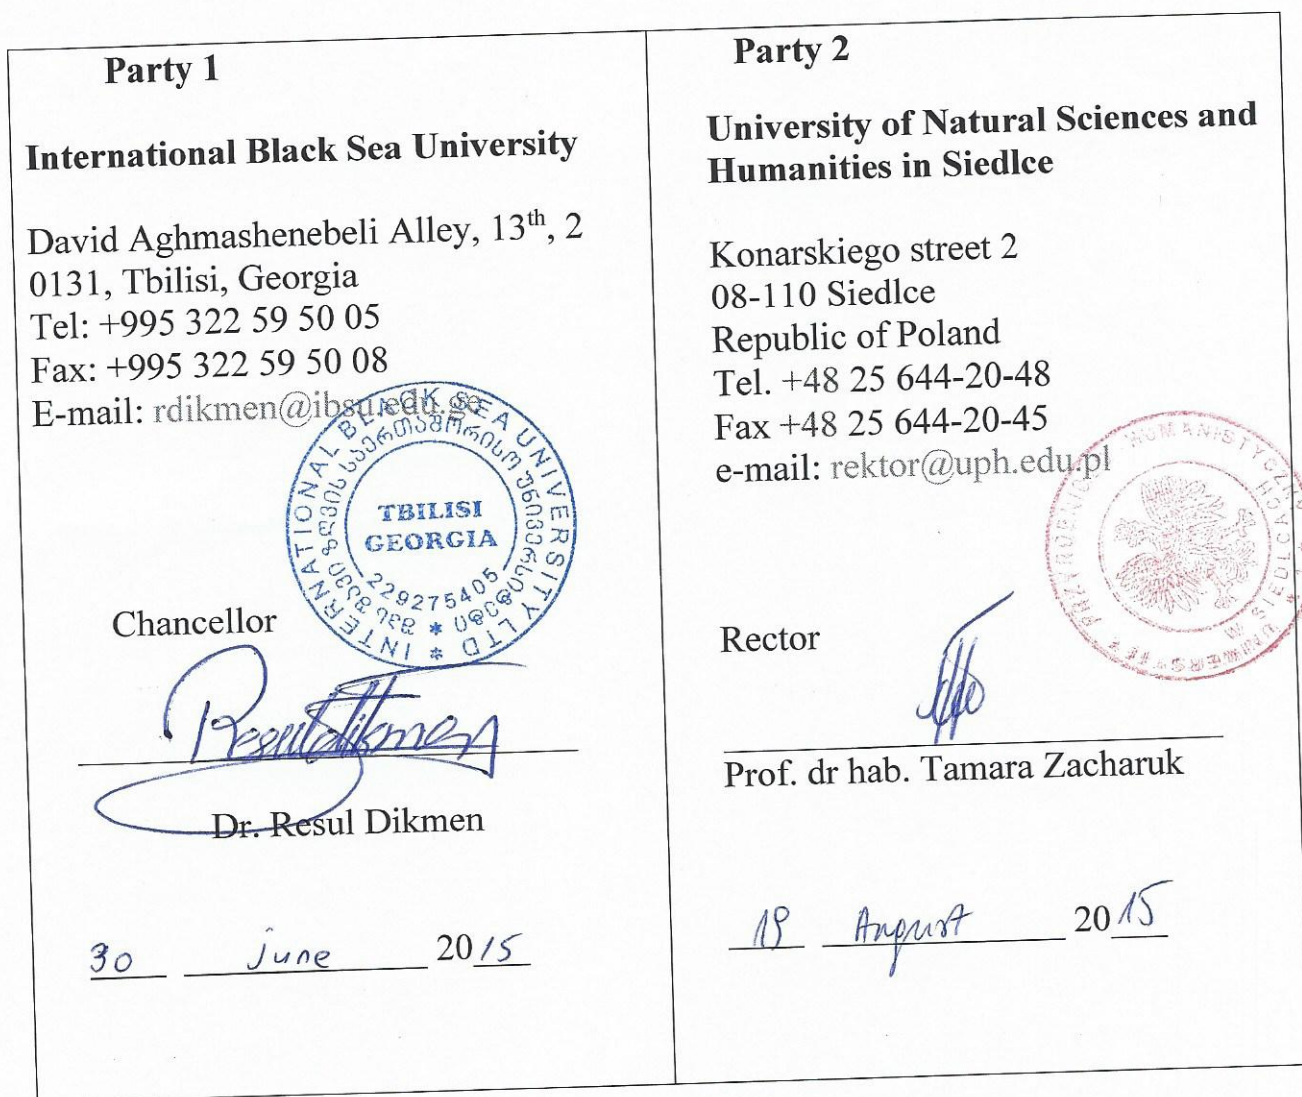 Party 1
International Black Sea University
David Aghmashenebeli Alley, 13th, 2
0131, Tbilisi, Georgia
Tel: +995 322 59 50 05
Fax: +995 322 59 50 08
E-mail: rdikmen@ibsu.edu.ge
INTERNATIONAL BLACK SEA UNIVERSITY LTD *
შავი ზღვის საერთაშორისო უნივერსიტეტი *
TBILISI
GEORGIA
229275405
Chancellor
Resul Dikmen
Dr. Resul Dikmen
30 june 2015
Party 2
University of Natural Sciences and
Humanities in Siedlce
Konarskiego street 2
08-110 Siedlce
Republic of Poland
Tel. +48 25 644-20-48
Fax +48 25 644-20-45
e-mail: rektor@uph.edu.pl
Rector
Prof. dr hab. Tamara Zacharuk
19 August 2015